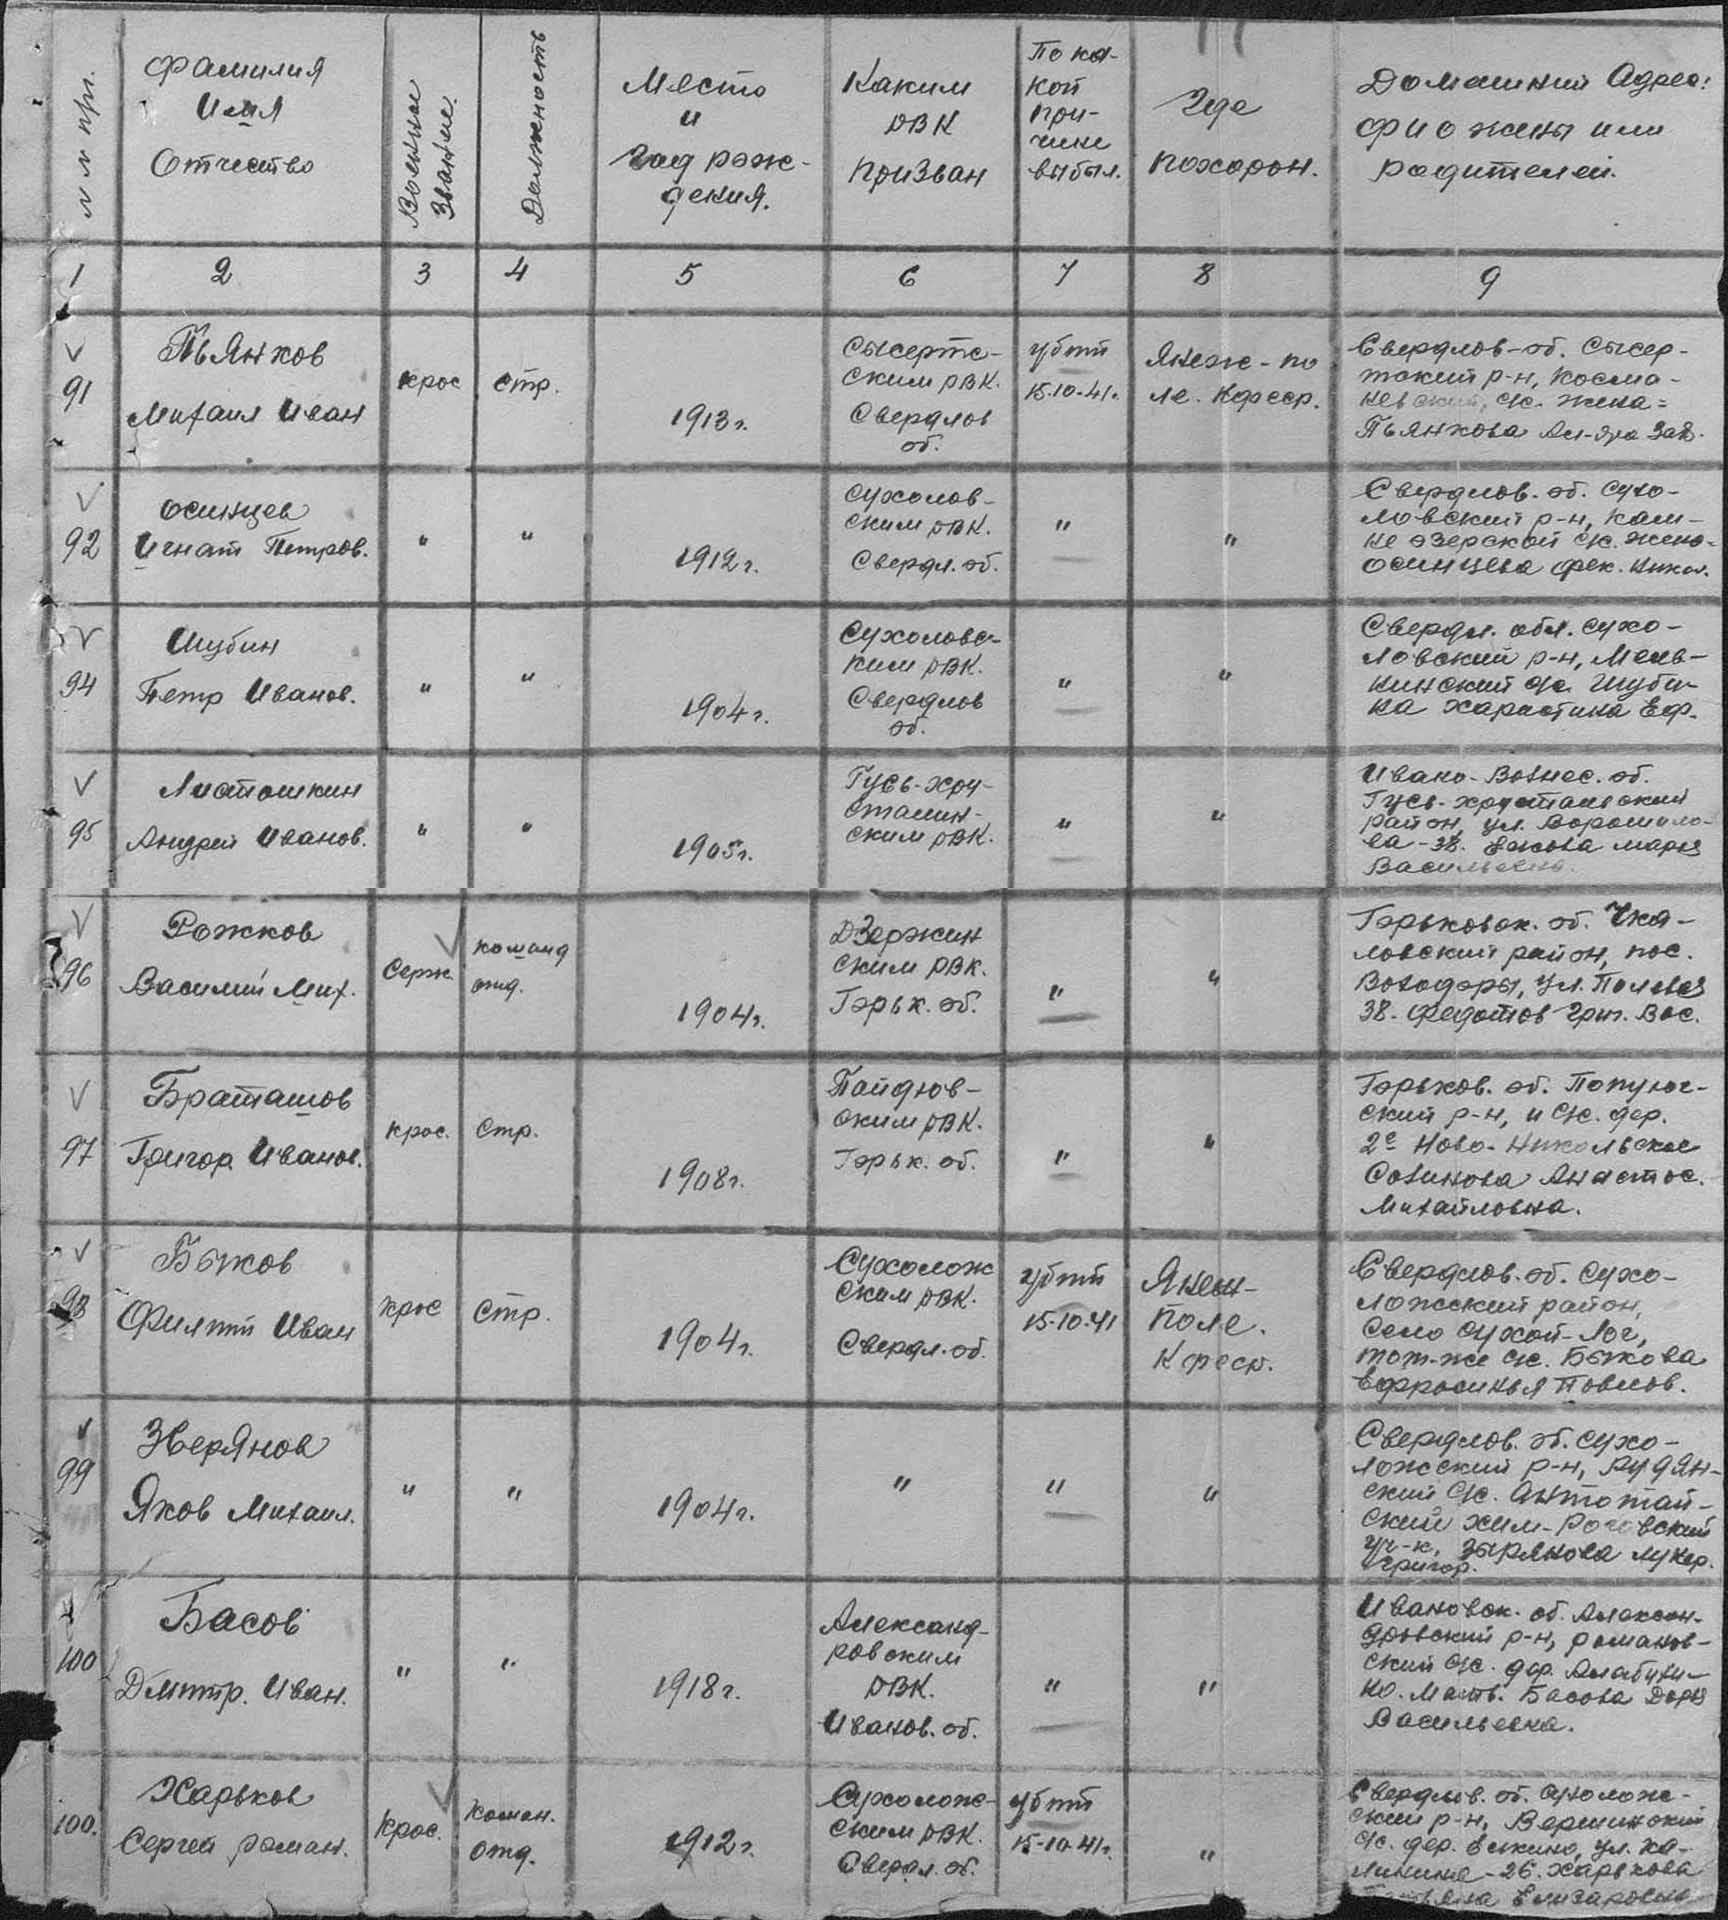 № № п/п.
Фамилия
Имя
Отчество
Военные
Звание.
Должность
Место
и
год рож-
дения.
Каким
РВК
призван
По ка-
кой
при-
чине
выбыл.
Где
похорон.
Домашний Адрес:
Ф И О жены или
родителей.
1 2 3 4 5 6 7 8 9
91
Пьянков
Михаил Иван
крас
стр.
1913 г.
Сысертс-
ским РВК.
Свердлов
об.
убит
15.10.41г.
Свердлов-об. Сысер-
тский р-н, Косма-
с/с. жена =
Пьянкова
92
Осинцев
Игнат Петров.
"
"
1912 г.
Сухолов-
ским РВК.
Свердл. об.
"
"
Свердлов. об. Сухо-
ловский р-н, Кам-
не озерской с/с. жена-
Осинцева Фек. Никол.
94
Шубин
Петр Иванов.
"
"
1904 г.
Сухоловс-
ким РВК.
Свердлов
об.
"
"
Свердл. обл. Сухо-
ловский р-н,
с/с. Шуби-
на Харистина Еф.
95
Листошкин
Андрей Иванов.
"
"
1905 г.
Гусь-Хру-
сталин-
ским РВК.
"
"
Ивано-Вознес. об.
Гусь-хрустальский
район, ул. Ворошило-
ва-38. Ежова Мария
Васильевна.
96
Рожков
Василий Мих.
Серж
команд
отд.
1904 г.
Дзержин
ским РВК.
Горьк. об.
"
"
Горьковск. об. Чка-
ловский район, пос.
ул. Полевая
38. Федотов Григ. Вас.
97
Браташов
Григор. Иванов.
крас.
стр.
1908 г.
ским РВК.
Горьк. об.
"
"
Горьков. об.
ский р-н, и с/с. дер.
2е Ново-Никольское
Созинова Анастас.
Михайловна.
98
Быков
Филипп Иван
крас
стр.
1904 г.
Сухолож
ским РВК.
Свердл. об.
убит
15-10-41
поле.
Свердлов. об. Сухо-
ложский район,
село Сухой-Лог,
тот-же с/с. Быкова
Ефросинья Павлов.
99
Зверянов
Яков Михаил.
"
"
1904 г.
"
"
"
Свердлов. об. Сухо-
ложский р-н, Рудян-
ский с/с.
ский хим-
уч-к, Зырянова Лукер.
Григор.
100
Басов
Дмитр. Иван.
"
"
1918 г.
Александ-
ровским
РВК.
Иванов. об.
"
"
Ивановск. об. Алексан-
дровский р-н, Романов-
ский с/с. дер.
Мать. Басова Дарья
Васильевна.
100.
Харьков
Сергей Роман.
Крас.
Коман.
отд.
1912 г.
Сухолож-
ским РВК.
Свердл. об.
убит
15-10-41г.
"
Свердлов. об. Сухолож-
ский р-н,
с/с. дер. ул. Ка-
линина-26. Харькова
Елизаровна